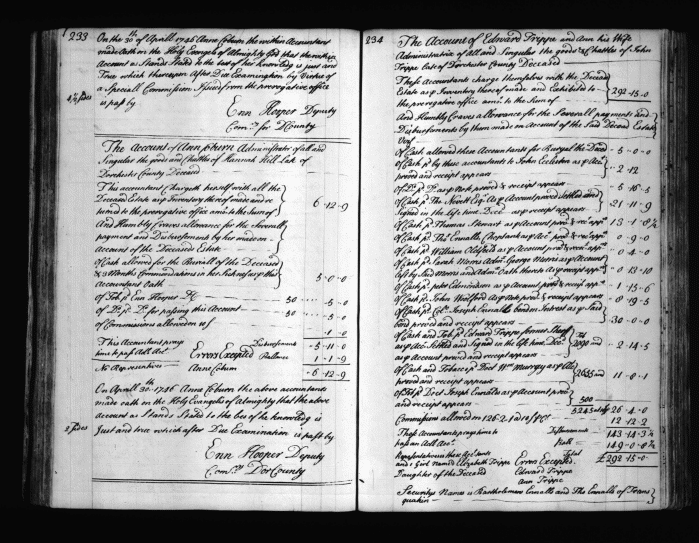 233
On the 30th of Aprill 1746 Anne Coburn the within Accountant
made Oath on the Holy Evangels of Almighty God that the within
Account as Stands Stated to the best of her knowledg is just and
True which thereupon After Due Examination by Virtue of
a Speciall Commission Issued from the prerogative office
is past by
Enn Hooper Deputy
Com.ry for D County
The Account of Ann Coburn Administrator of all and
Singular the goods and Chattles of Hannah Hill Late of
Dorchester County Deceased
This accountant Chargeth herself with all the
Deceased Estate as p Inventory thereof made and re
turned to the prerogative office am.o to the Sum of
6 - 12 - 9
And Humbly Craves allowance for the Severall
payment and Disbursements by her made on
Account of the Deceased Estate
Of Cash allowed for the Buriall of the Deceased
Accountant Oath
5 - 0 - 0
Of Tob.o p.d Enn Hooper
50
.. - 5 - 0
Of D.o p.d D.o for passing this Account
50
.. - 5 - 0
Of Commissions allowed
.. - 1 - 0
This Accountant prays
Disbursements
- 5 - 11 - 0
time to pass Add. Act
Errors Excepted
Ballance
1 - 1 - 9
No Representatives
Anne Coburn
- 6 - 12 - 9
On Aprill 30th 1746 Anne Coburn the above accountants
made oath on the Holy Evangelis of Almighty that the above
account as Stands Stated to the best of her knowledg is
Just and true which after Due Examination is past by
2 Sides
Enn Hooper Deputy
Com.ry Dor County
234
The Account of Edward Trippe and Ann his Wife
Administratrix of All and Singular the goods & Chattles of John
Trippe Late of Dorchester County Deceased
These Accountants charge themselves with the Deceasd
Estate as p Inventory thereof made and Exhibited to
the prerogative office am.o to the Sum of
292 - 15 - 0
And Humbly Craves allowance for the Severall payments and
Disbursements by them made on Account of the Said Deceasd Estate
Of Cash allowed these Accountants for Buryal the Decd
5 - 0 - 0
Of Cash p.d by these accountants to John Eccleston as p Acc.t
proved and receipt appears
2 - 12
Of D.o p.d D.o as p Note proved & receipt appears
5 - 16 - 5
Of Cash p.d Tho.s Nevett Esq.r As p Account proved Settled and
Signed in the Life time Decd as p receipt appears
21 - 11 - 9
Of Cash p.d Thomas Stewart as p Account prov.d & rec.t app.rs
13 - 1 - 8½
Of Cash p.d Tho.s Ennalls as p Acc.t prov.d & rec.t app.rs
0 - 9 - 0
Of Cash p.d William as p Account prov.d & rec.t app.rs
0 - 4 - 0
Of Cash p.d Sarah Morris Adm.x George Morris as p Account
0 - 13 - 10
Of Cash p.d as p Account prov.d & receipt app.rs
1 - 15 - 6
Of Cash p.d John as p Note prov.d & receipt appears
0 - 19 - 5
Of Cash p.d Col.o Joseph Ennalls bond on Interest as p Said
bond proved and receipt appears
30 - 0 - 0
Of Cash and Tob.o p.d Edward Trippe former Sheriff
as p Acc.t Settled and Signed in the life time Dec.d
2 - 14 - 5
as p Account proved and receipt appears
Of Cash and Tobacco p.d Doct W.m Murray as p Acc.t
2655 and
11 - 0 - 1
proved and receipt appears
Of Tob.o p.d Doct Joseph Ennalls as p Account proved
500
and receipt appears
5245 at
26 - 4 - 0
Commissions allowed on 126 - 2 - 1 at 10 p C.t
12 - 12 - 2
These Accountants prays time to
Disbursements
pass an Add. Acc.t
Ball
Total
£ 292 - 15 - 0
and 1 Girl Named Elizabeth Trippe
Errors Excepted
Daughter of the Deceased
Edward Trippe
Ann Trippe
Securitys Names is Bartholomew Ennalls and Tho Ennalls of Trans
quakin